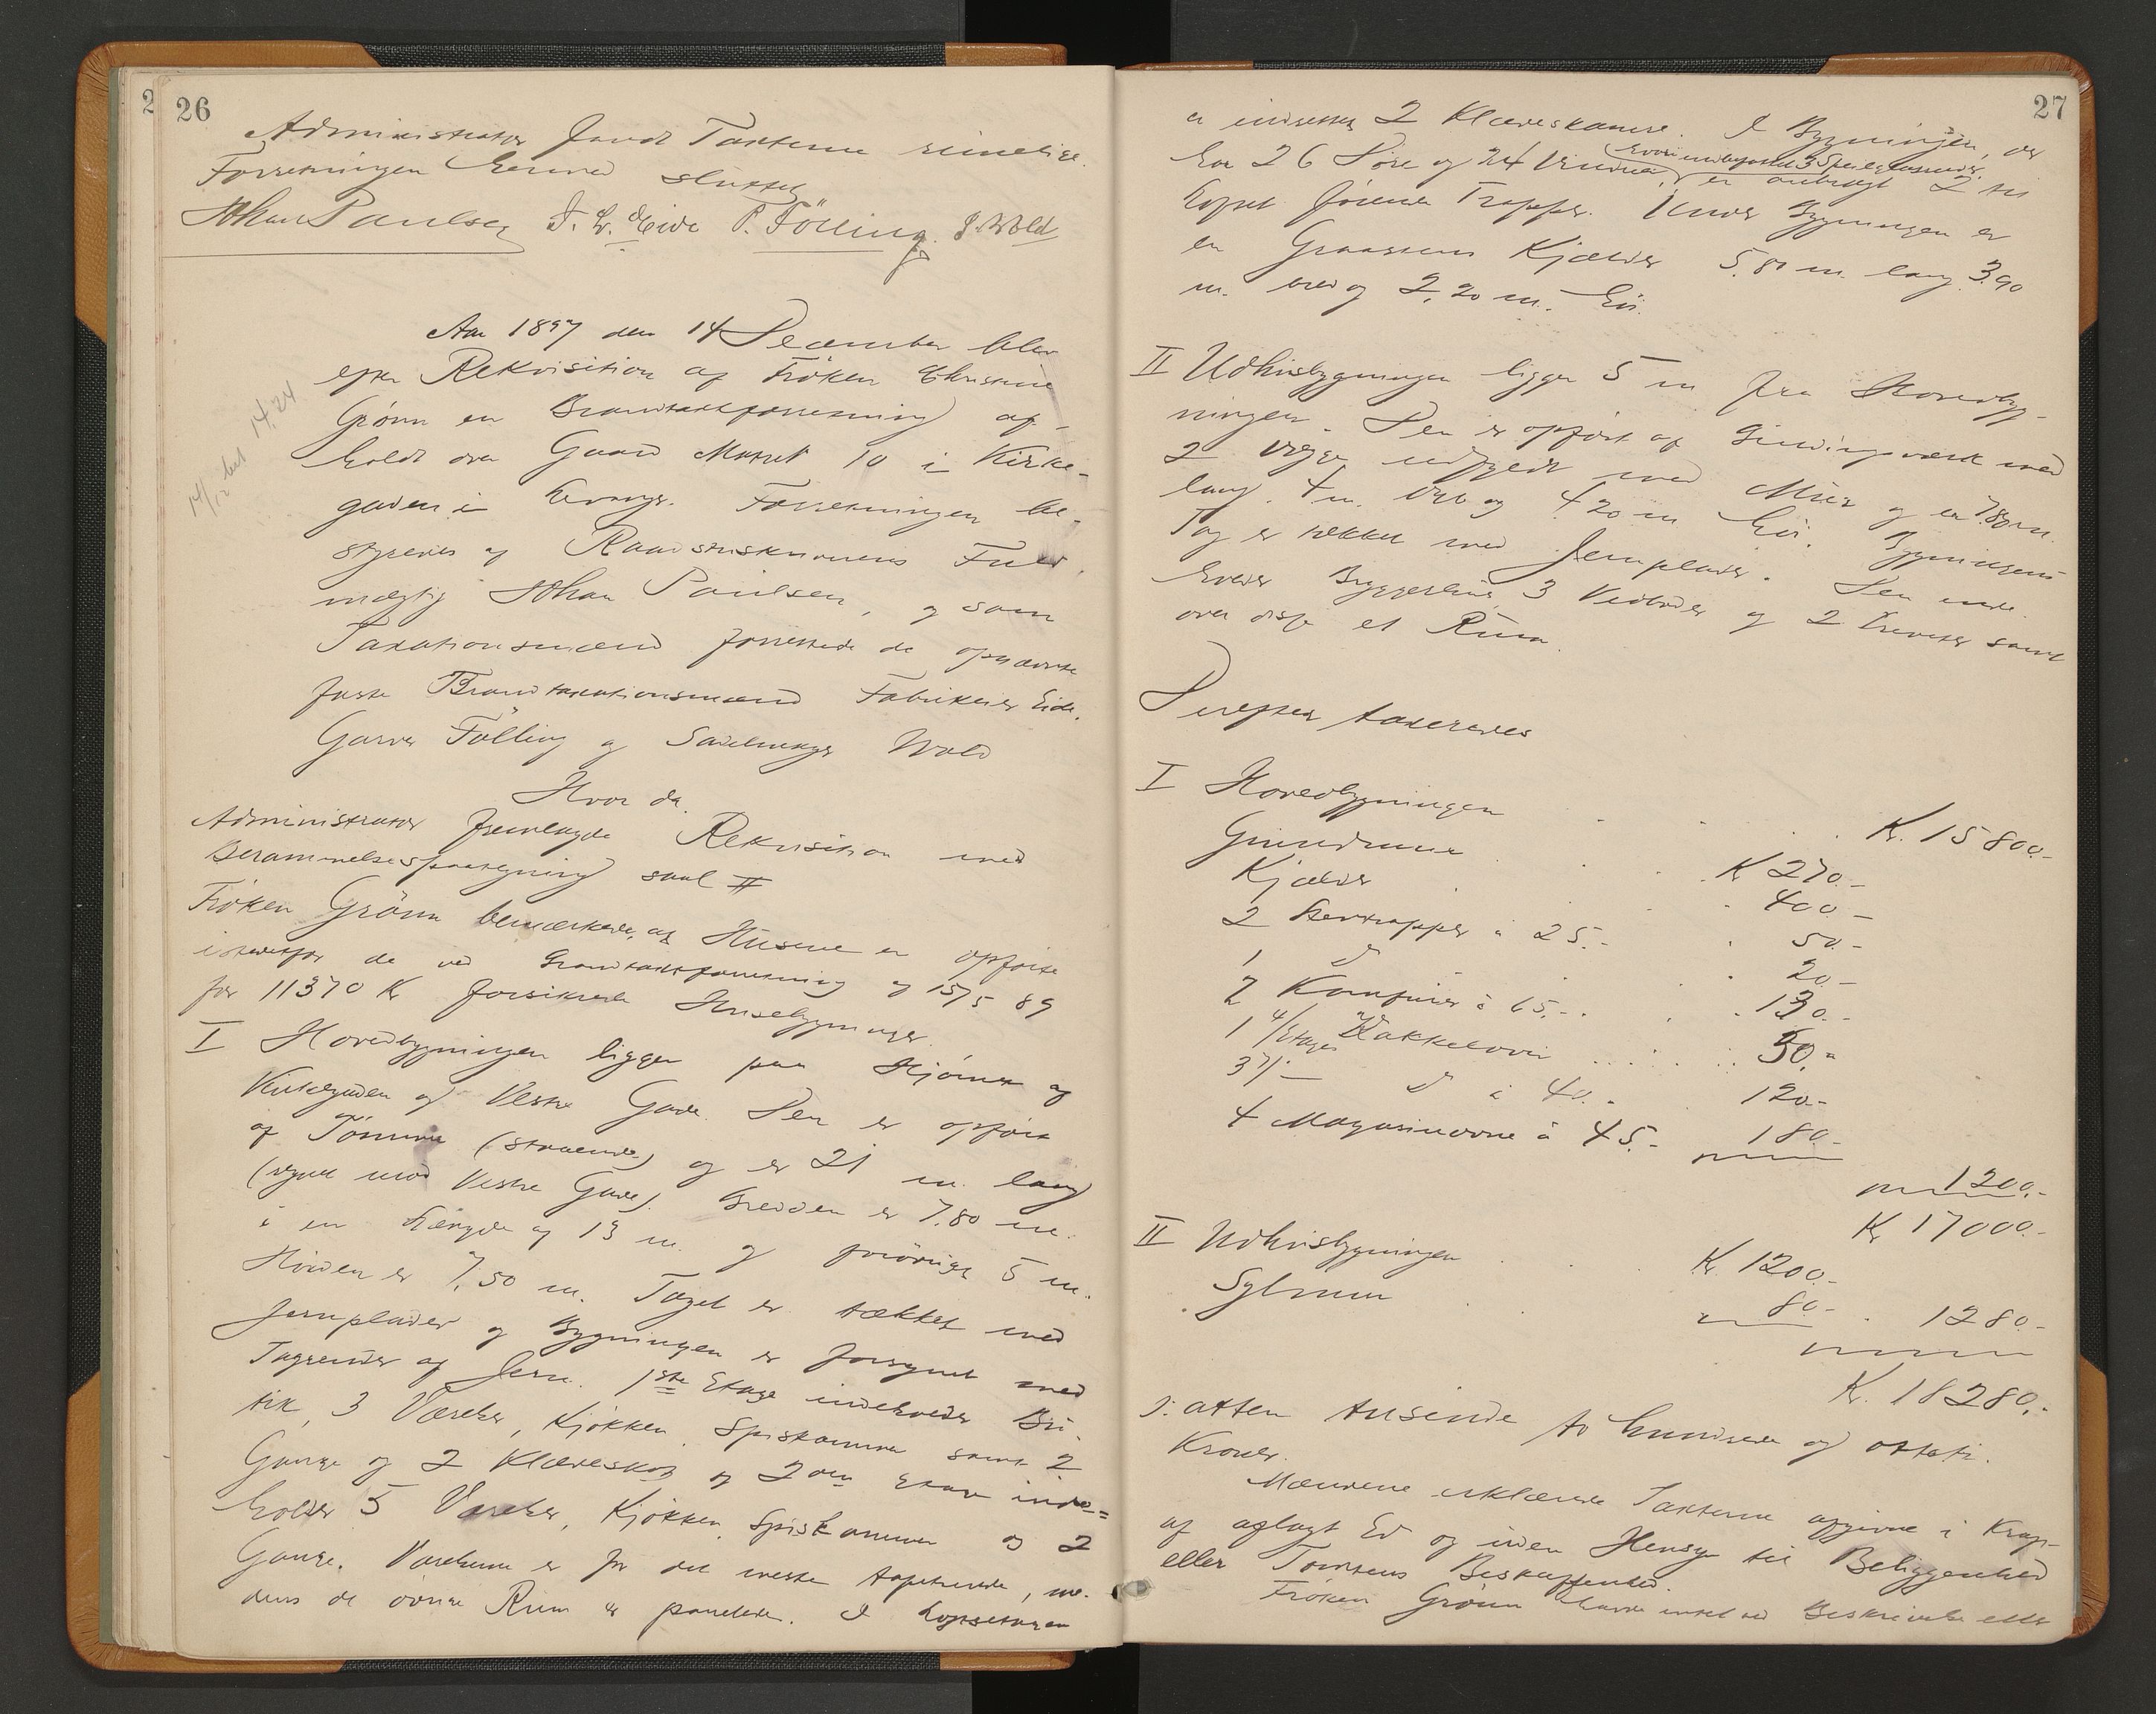 2
26
Administrator fandt Taxterne rimelige.
Forretningen hermed sluttet
Johan Paulsen J. L. Eide P. Fölling. J. Wold
Aar 1897 den 14 December blev
efter Rekvisition af Fröken Christine
Grönn en Brandtaxtforretning af-
holdt over Gaard Matrik 10 i Kirke-
gaden i Levanger. Forretningen be-
styredes af Raadstuskriverens Fuld-
mægtig Johan Paulsen, og som
Taxationsmænd forrettede de opnævnte
faste Brandtaxationsmænd Fabrikeier Eide,
Garver Fölling og Sadelmager Wold
14/12 bet 14,24
Hvor da.
Administrator fremlagde Rekvisition med
Berammelsespaategning saal #
Fröken Grönn bemærkede, at Husene er opförte
istedetfor de ved Brandtaxtforretning af 15/5 89
for 11370 Kr forsikrede Husebygninger.
I Hovedbygningen ligger paa Hjörnet af
Kirkegaden og Vestre Gade. Den er opfört
af Tömmer (staaende) og er 21 m. lang
(regnet mod Vestre Gade). Bredden er 7.80 m.
i en Længde af 13 m. og forövrigt 5 m.
Höiden er 7,50 m. Taget er tækket med
Jernplader og Bygningen er forsynet med
Tagrender af Jern. 1ste Etage indeholder Bu-
tik, 3 Værelser, Kjökken, Spiskammer samt 2
Gange og 2 Klædeskab og 2den Etage inde-
holder 5 Værelser, Kjökken, Spiskammer og 2
Gange. Værelserne er for det meste tapetserede, me-
dens de övrige Rum er panelede. I Loftsetagen
27
er indrettet 2 Klædeskamre. I Bygningen, der
har 26 Döre og 24 Vinduer, er anbragt 2 til
hvori indbefattet 3 Speilglasruder,
Loftet förende Trapper. Under Bygningen er
en Graastens Kjælder 5,80 m. lang 3.90
m. bred og 2,20 m. höi.
II Udhusbygningen ligger 5 m fra Hovedbyg-
ningen. Den er opfört af Bindingsværk med
2 Vægge udfyldt med Mur og er 7.80 m.
lang, 4 m. bred og 4 20 m höi. Bygningens
Tag er tækket med Jernplader. Den inde-
holder Bryggerhus, 3 Vedboder og 2 samt
over disse et Rum.
Derefter taxeredes
I Hovedbygningen . . . . Kr. 15 800.-
Grundmur . . Kr 270.-
Kjælder . . . 400.-
2 Stentrapper à 25.- . 50.-
1 D . . 20.-
2 Komfurer à 65.- . . . 130.-
1 4/Etages Kakkelovn . . . . . 50,"
3 3/- D à 40.- 120.-
4 Magasinovne à 45.- 180.-
1200.-
Kr 17000.-
II Udhusbygningen . . Kr. 1200.-
Sylmur . . 80.- . 1280.-
Kr. 18280.-
ɔ: atten tusinde to hundrede og otteti
Kroner.
Mændene erklærede Taxterne afgivne i Kraft
af aflagt Ed og uden Hensyn til Beliggenhed
eller Tomtens Beskaffenhed.
Fröken Grönn havde intet ved Beskrivelse eller